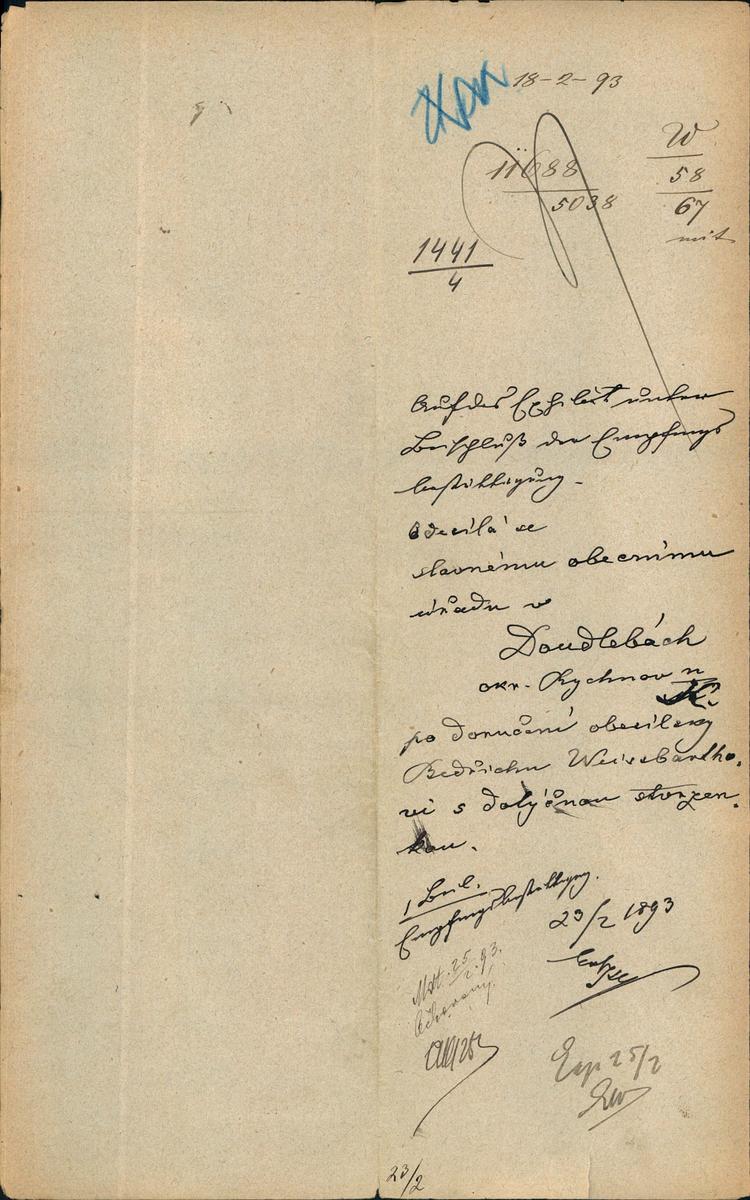 18-2-93
W
11688
58
5038
67
mit
1441
4
Auf das Exhibit unter
Beischluß der Empfangs
bestättigung.
Odesílá se
slavnému obecnímu
úřadu v
Doudlebách
okr. Rychnov n
K.
po doručení obsílky
Bedřichu Weissbartho-
vi s dotyčnou stvrzen-
kou.
1 Beil.
Empfangsbestättigung.
23/2 1893
25/2 93.
Exp 25/2
23/2